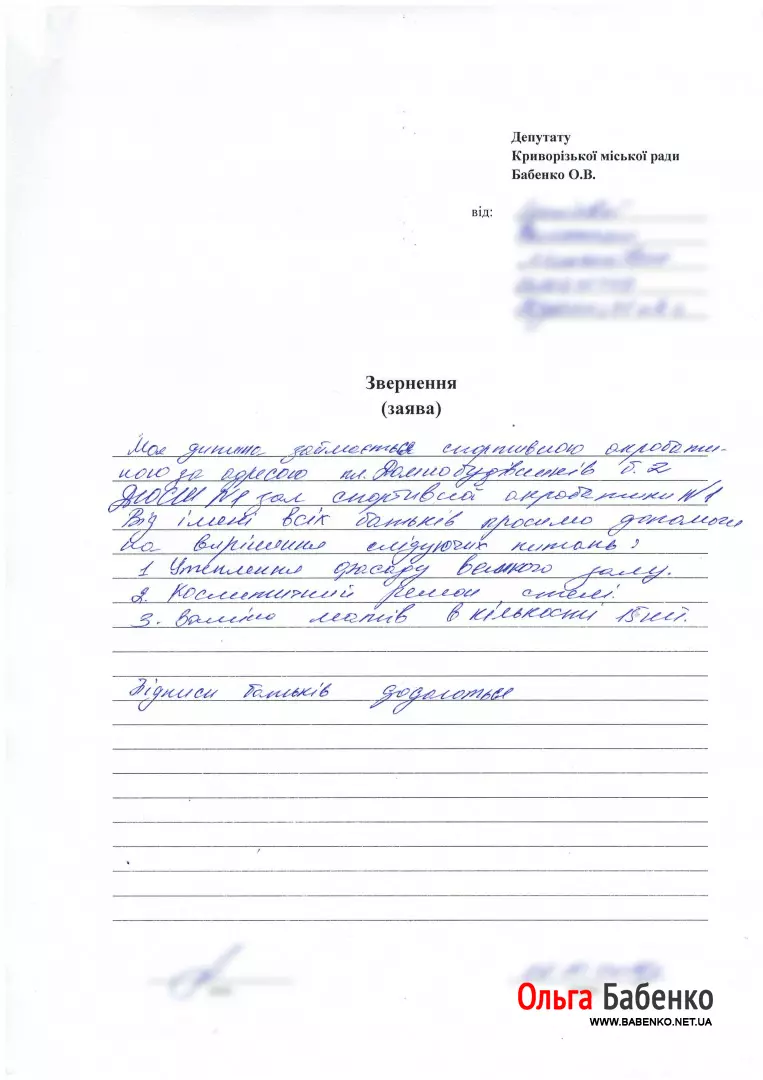 Депутату
Криворізької міської ради
Бабенко О.В.
від:
Звернення
(заява)
Моя дитина займається спортивною акробати-
кою за адресою пл. Домнобудівників б. 2
ДЮСШ №1 зал спортивной акробатики №1
Від імені всіх батьків просимо допомоги
на вирішення слідуючих питань:
1 Утеплення фасаду великого залу.
2. Косметичний ремон стелі.
3. Заміна матів в кількості 15 шт.
Підписи батьків додаються
Ольга Бабенко
WWW.BABENKO.NET.UA